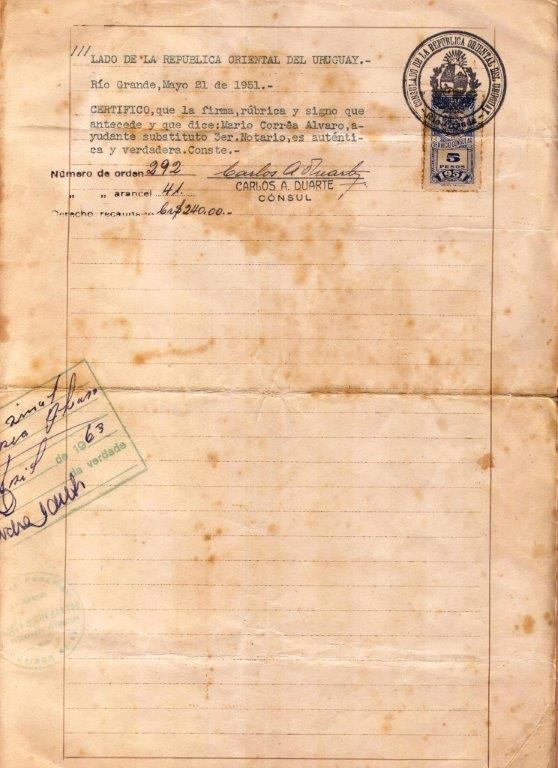 ///LADO DE LA REPUBLICA ORIENTAL DEL URUGUAY.-
Río Grande,Mayo 21 de 1951.-
CERTIFICO,que la firma,rúbrica y signo que
antecede y que dice:Mario Corrêa Alvaro,a-
yudante substituto 3er.Notario,es auténti-
ca y verdadera.Conste.-
Número de orden 292
" " arancel 41
Derecho recaudado Cr$240.00.-
Carlos A Duarte
CARLOS A. DUARTE
CÓNSUL
CONSULADO DE LA REPUBLICA ORIENTAL DEL URUGUAY
SERVICIO CONSULAR
5
PESOS
1951
63
de 19
da verdade